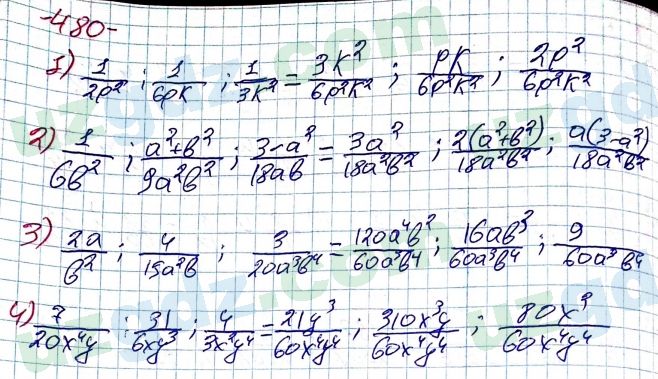 -480-
1) 1/2p²; 1/6pk; 1/3k² = 3k²/6p²k²; pk/6p²k²; 2p²/6p²k²
2) 1/6b²; a²+b²/9a²b²; 3-a²/18ab = 3a²/18a²b²; 2(a²+b²)/18a²b²; a(3-a²)/18a²b²
3) 2a/b²; 4/15a²b; 3/20a³b⁴ = 120a⁴b²/60a³b⁴; 16ab³/60a³b⁴; 9/60a³b⁴
4) 7/20x⁴y; 31/6xy³; 4/3x²y⁴ = 21y³/60x⁴y⁴; 310x³y/60x⁴y⁴; 80x²/60x⁴y⁴